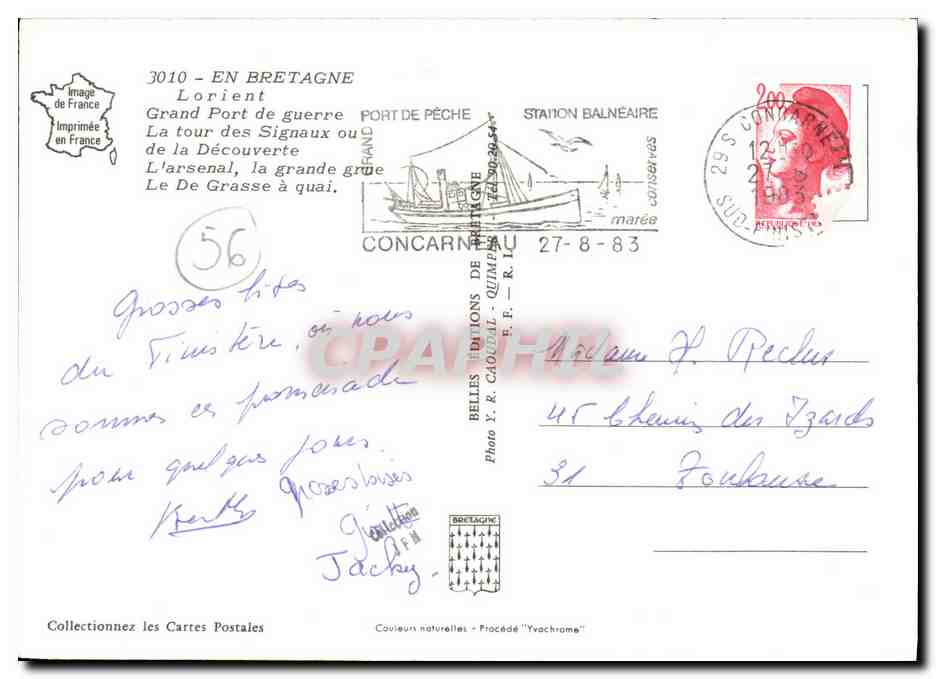 Image
de France
Imprimée
en France
3010 - EN BRETAGNE
Lorient
Grand Port de guerre
La tour des Signaux ou
de la Découverte
L'arsenal, la grande grue
Le De Grasse à quai.
56
GRAND
PORT DE PÊCHE
STATION BALNÉAIRE
marée
conserves
CONCARNEAU 27-8-83
2,00
29 S CONCARNEAU
27-8
1983
SUD-FINIST
Grosses bises
du Finistère, où nous
sommes en promenade
pour quelques jours.
Grosses bises
Jacky.
BELLES ÉDITIONS DE BRETAGNE
Photo Y. R. CAOUDAL - QUIMPER - Tél. 90.20.54
CPAPHIL
Madame H. Reclus
45 Chemin des Izards
31 Toulouse
Collection
J F N
BRETAGNE
Collectionnez les Cartes Postales
Couleurs naturelles - Procédé "Yvochrome"